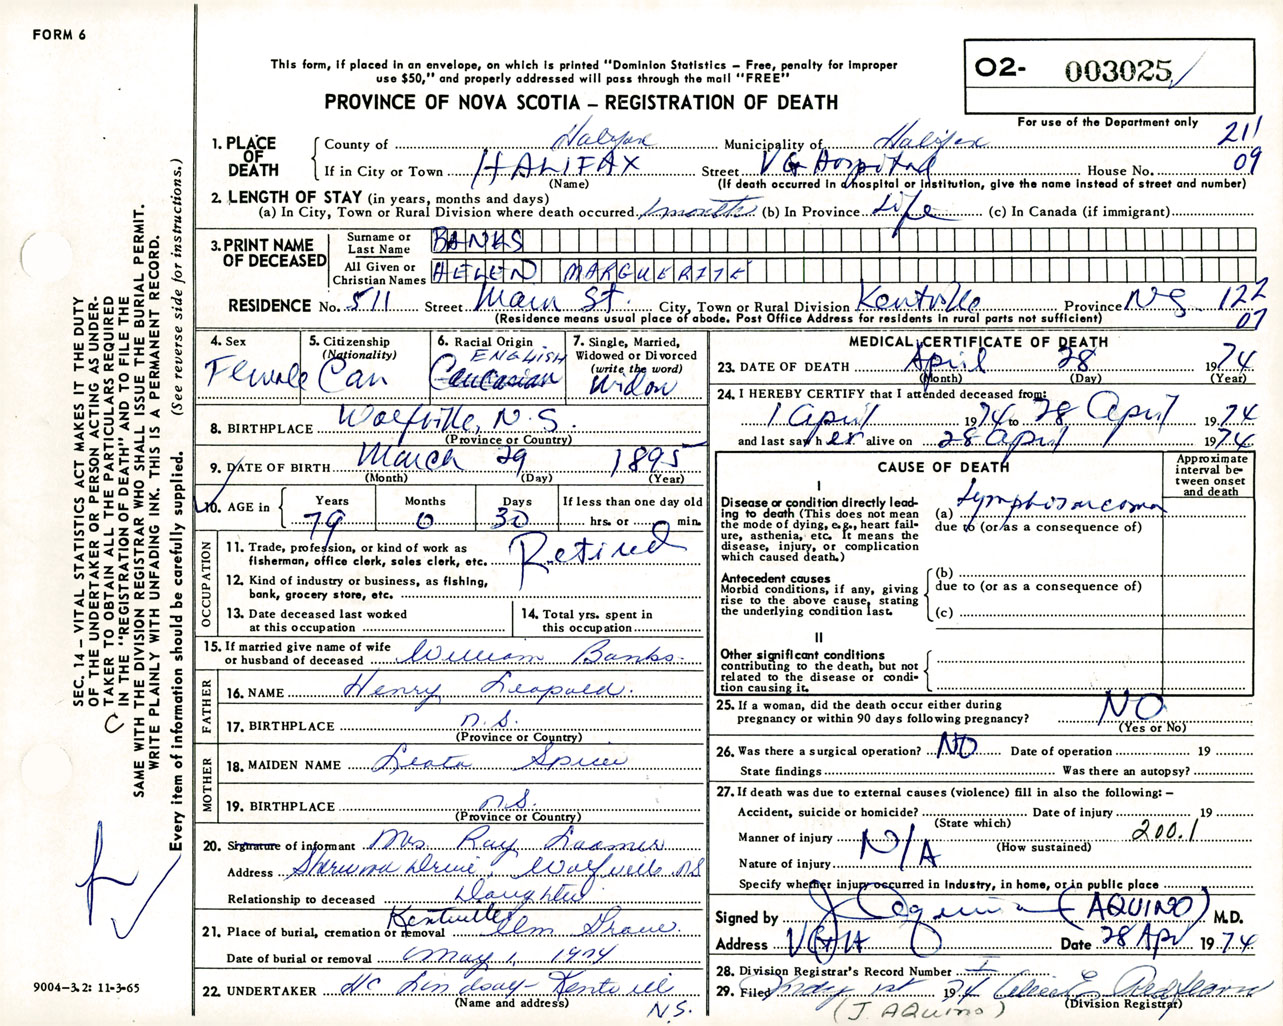 FORM 6
This form, if placed in an envelope, on which is printed "Dominion Statistics – Free, penalty for improper
use $50," and properly addressed will pass through the mail "FREE"
PROVINCE OF NOVA SCOTIA – REGISTRATION OF DEATH
O2- 003025
For use of the Department only
SEC. 14 – VITAL STATISTICS ACT MAKES IT THE DUTY
OF THE UNDERTAKER OR PERSON ACTING AS UNDER-
TAKER TO OBTAIN ALL THE PARTICULARS REQUIRED
IN THE "REGISTRATION OF DEATH" AND TO FILE THE
SAME WITH THE DIVISION REGISTRAR WHO SHALL ISSUE THE BURIAL PERMIT.
WRITE PLAINLY WITH UNFADING INK. THIS IS A PERMANENT RECORD.
Every item of information should be carefully supplied. (See reverse side for instructions.)
1. PLACE OF DEATH
County of Halifax Municipality of Halifax 211
If in City or Town HALIFAX Street VG Hospital House No. 09
(Name) (If death occurred in a hospital or institution, give the name instead of street and number)
2. LENGTH OF STAY (in years, months and days)
(a) In City, Town or Rural Division where death occurred 1 month (b) In Province Life (c) In Canada (if immigrant)
3. PRINT NAME OF DECEASED
Surname or Last Name BANKS
All Given or Christian Names HELEN MARGUERITE
RESIDENCE No. 511 Street Main St. City, Town or Rural Division Kentville Province N.S. 122
(Residence means usual place of abode. Post Office Address for residents in rural parts not sufficient) 07
4. Sex Female
5. Citizenship (Nationality) Can
6. Racial Origin ENGLISH Caucasian
7. Single, Married, Widowed or Divorced (write the word) Widow
8. BIRTHPLACE Wolfville, N.S.
(Province or Country)
9. DATE OF BIRTH March 29 1895
(Month) (Day) (Year)
10. AGE in Years 79 Months 0 Days 30 If less than one day old hrs. or min.
OCCUPATION
11. Trade, profession, or kind of work as fisherman, office clerk, sales clerk, etc. Retired
12. Kind of industry or business, as fishing, bank, grocery store, etc.
13. Date deceased last worked at this occupation
14. Total yrs. spent in this occupation
15. If married give name of wife or husband of deceased William Banks
FATHER
16. NAME Henry Leopold
17. BIRTHPLACE N.S.
(Province or Country)
MOTHER
18. MAIDEN NAME Leota Spicer
19. BIRTHPLACE N.S.
(Province or Country)
20. Signature of informant Mrs. Ray Loomer
Address Sherwood Drive, Wolfville NS
Relationship to deceased Daughter
21. Place of burial, cremation or removal Kentville Elm Grove
Date of burial or removal May 1, 1974
22. UNDERTAKER HC Lindsay - Kentville
(Name and address) N.S.
9004-3.2: 11-3-65
MEDICAL CERTIFICATE OF DEATH
23. DATE OF DEATH April 28 1974
(Month) (Day) (Year)
24. I HEREBY CERTIFY that I attended deceased from:
1 April 1974 to 28 April 1974
and last saw her alive on 28 April 1974
CAUSE OF DEATH
Approximate interval between onset and death
I
Disease or condition directly leading to death (This does not mean the mode of dying, e.g., heart failure, asthenia, etc. It means the disease, injury, or complication which caused death.)
(a) Lymphosarcoma
due to (or as a consequence of)
Antecedent causes
Morbid conditions, if any, giving rise to the above cause, stating the underlying condition last.
(b)
due to (or as a consequence of)
(c)
II
Other significant conditions
contributing to the death, but not related to the disease or condition causing it.
25. If a woman, did the death occur either during pregnancy or within 90 days following pregnancy? NO
(Yes or No)
26. Was there a surgical operation? NO Date of operation 19
State findings Was there an autopsy?
27. If death was due to external causes (violence) fill in also the following: –
Accident, suicide or homicide? Date of injury 19
(State which)
Manner of injury N/A 200.1
(How sustained)
Nature of injury
Specify whether injury occurred in industry, in home, or in public place
Signed by J Aquino (AQUINO) M.D.
Address VGH Date 28 Apr 1974
28. Division Registrar's Record Number
29. Filed May 1st 1974
(Division Registrar)
(J. AQUINO)